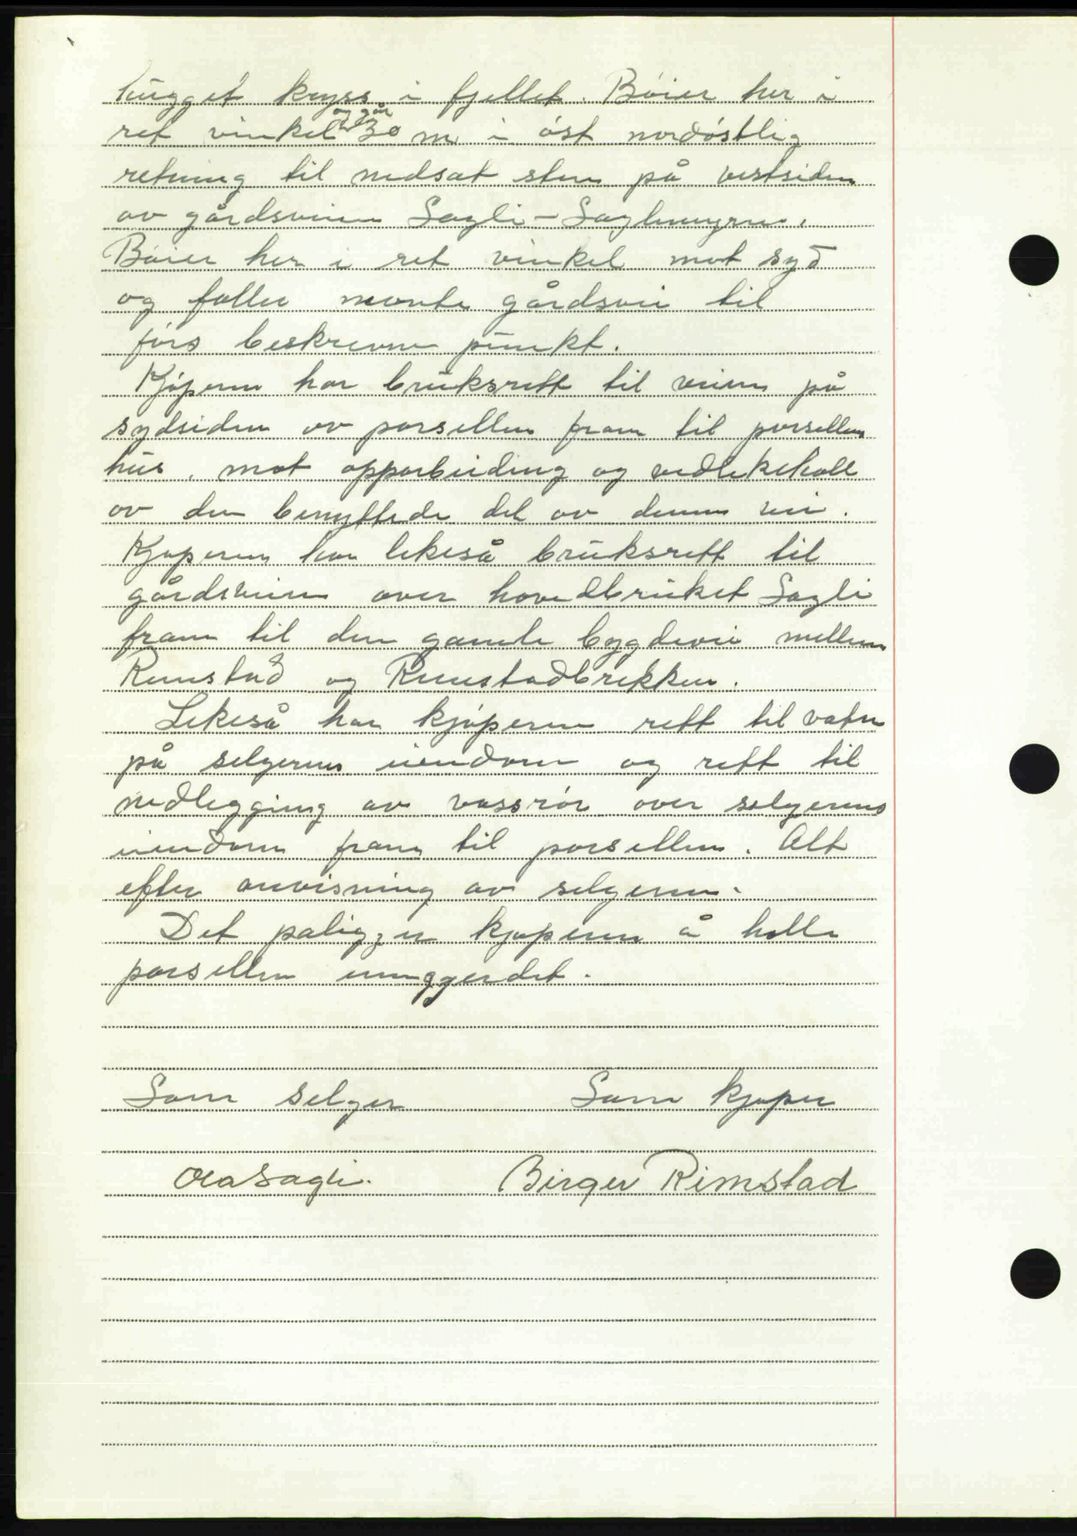 hugget kryss i fjellet. Bøier her i
ret vinkel og går 30 m i øst nordøstlig
retning til nedsat sten på vestsiden
av gårdsveien Sagli - Saglimyren.
Bøier her i ret vinkel mot syd
og føller nevnte gårdsvei til
førs beskrevne punkt.
Kjøperen har bruksrett til veien på
sydsiden av parsellen fram til parsellens
hus, mot opparbeiding og vedlikehold
av den benyttede del av denne vei.
Kjøperen har likeså bruksrett til
gårdsveien over hovedbruket Sagli
fram til den gamle bygdevei mellem
Rimstad og Rimstadbrekken.
Likeså har kjøperen rett til vatn
på selgerens eiendom og rett til
nedlegging av vassrør over selgerens
eiendom fram til parsellen. Alt
efter anvisning av selgeren.
Det paligger kjøperen å holle
parsellen inngjerdet.
Som selger Som kjøper
Ola Sagli. Birger Rimstad